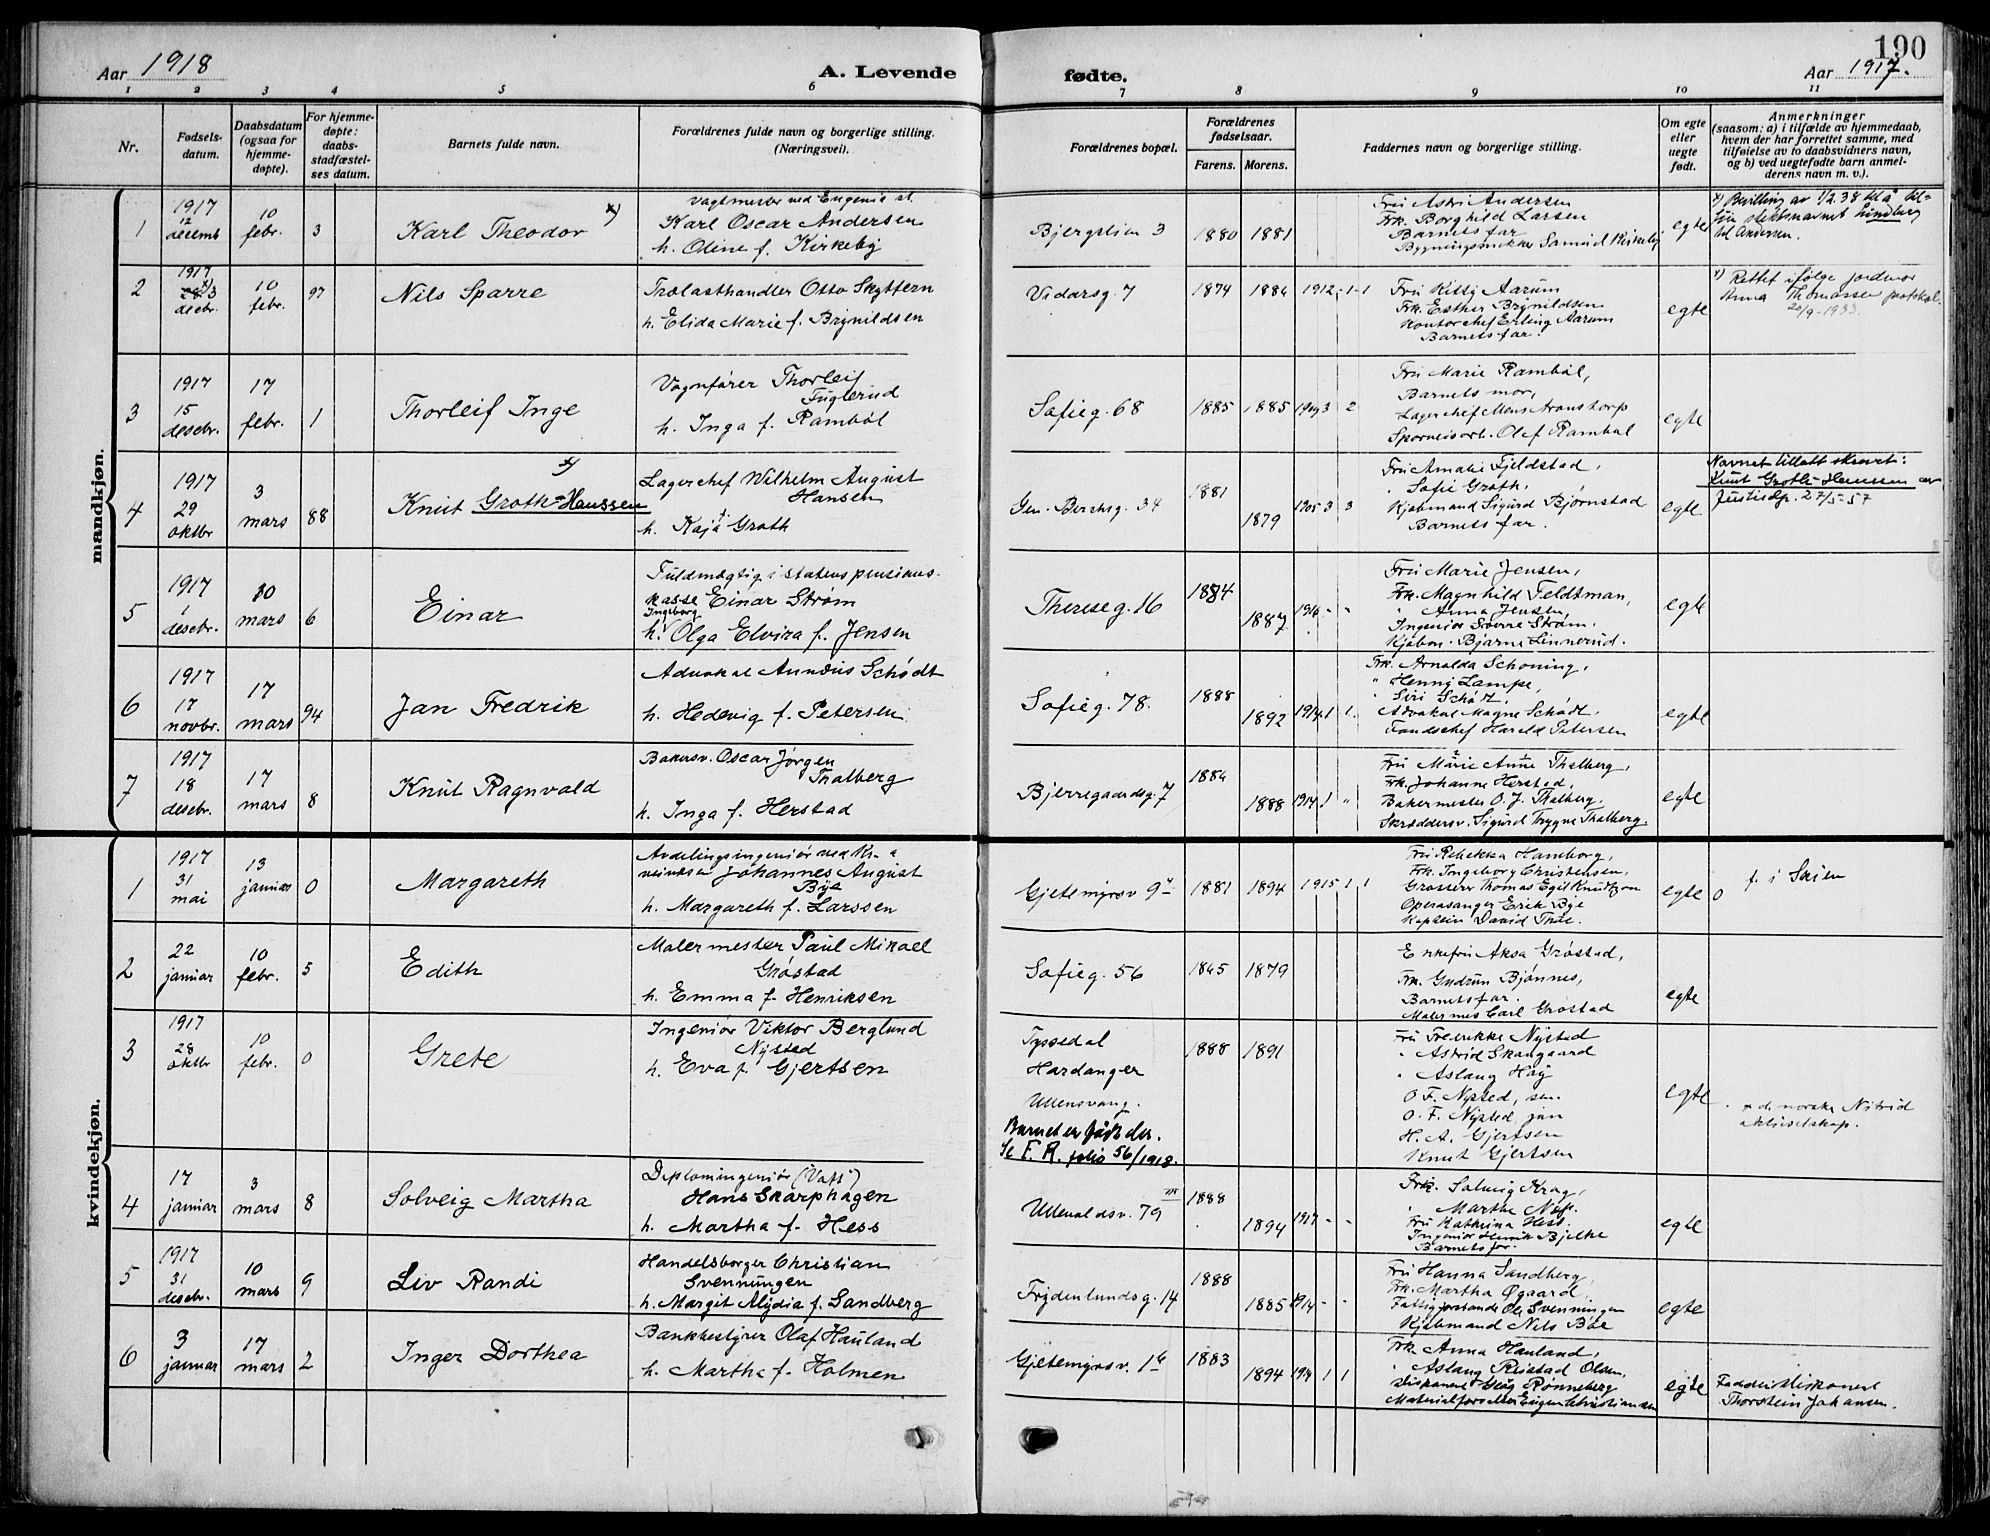 Aar 1918
A. Levende
fødte.
190
Aar 1917.
1 2 3 4 5 6 7 8 9 10 11
Nr.
Fødsels-
datum.
Daabsdatum
(ogsaa for
hjemme-
døpte).
For hjemme-
døpte:
daabs-
stadfæstel-
ses datum.
Barnets fulde navn.
Forældrenes fulde navn og borgerlige stilling.
(Næringsvei).
Forældrenes bopæl.
Forældrenes
fødselsaar.
Farens. Morens.
Faddernes navn og borgerlige stilling.
Om egte
eller
uegte
født.
Anmerkninger
(saasom: a) i tilfælde av hjemmedaab,
hvem der har forrettet samme, med
tilføielse av to daabsvidners navn,
og b) ved uegtefødte barn anmel-
derens navn m. v.).
mandkjøn.
1
1917
12
decemb
10
febr.
3
Karl Theodor x)
Vagtmester ved Eugenia st.
Karl Oscar Andersen
h. Oline f. Kirkeby
Bjergslien 3
1880 1881
Fru Astri Andersen
Frk. Borghild Larsen
Barnets far
Bygningssnekker Samuel Kirkeby
egte
x) Bevilling av 1/2 38 til å til-
føie slektsnavnet Lindberg
til Andersen.
2
1917
3
decbr.
10
febr.
97
Nils Sparre
Trælasthandler Otto Skyttern
h. Elida Marie f. Brynildsen
Vidarsg. 7
1874 1884 1912 - 1 - 1
Fru Kitty Aarum
Frk. Esther Brynildsen
Kontorchef Erling Aarum
Barnets far.
egte
x) Rettet ifølge jordmor
Anna Thomassen protokol.
20/9-1933.
3
1917
15
desebr.
17
febr.
1
Thorleif Inge
Vognfører Thorleif
Fuglerud
h. Inga f. Rambøl
Sofieg. 68
1885 1885 1909 3 2
Fru Marie Rambøl,
Barnets mor,
Lagerchef Mens Aronstorp
Sporveisarb. Olaf Rambøl
egte
4
1917
29
oktbr
3
mars
88
x)
Knut Groth-Hanssen
Lagerchef Wilhelm August
Hansen
h. Kaja f. Groth
Gen. Birchsg. 34
1881
1879 1905 3 3
Fru Amalie Fjeldstad,
" Sofie Groth,
Kjøbmand Sigurd Bjørnstad
Barnets far.
egte
Navnet tillatt skrevet:
Knut Groth-Hanssen av
Justisdp. 27/5-57
5
1917
1
desebr.
10
mars
6
Einar
Fuldmægtig i statens pensions-
kasse Einar Strøm
Ingeborg
h. Olga Elvira f. Jensen
Thereseg. 16
1884
1887 1916 - "
Fru Marie Jensen,
Frk. Magnhild Feldtman,
" Anna Jensen,
Ingeniør Sverre Strøm.
Kjøbm. Bjarne Linnerud.
egte
6
1917
17
novbr.
17
mars
94
Jan Fredrik
Advokat Annæus Schødt
h. Hedevig f. Petersen
Sofieg. 78.
1888
1892 1914 1 1.
Frk. Arnalda Schøning,
" Henny Lampe,
" Siri Schødt,
Advokat Magne Schødt.
Fondschef Harald Petersen
egte
7
1917
18
desebr.
17
mars
8
Knut Ragnvald
Bakersv. Oscar Jørgen
Thalberg
h. Inga f. Herstad
Bjerregaardsg. 7
1884
1888 1914 1 "
Fru Marie Anne Thalberg,
Frk. Johanne Herstad,
Bakermester O. J. Thalberg.
Skræddersv. Sigurd Trygve Thalberg.
egte
kvindekjøn.
1
1917
31
mai
13
januar
0
Margareth
Avdelingsingeniør ved Kr-a
Johannes August
Bye
h. Margareth f. Larssen
Gjetemyrsv 9
1881 1894 1915 1 1
Fru Rebekka Hamborg,
Frk. Ingeborg Christensen,
Grosserer Thomas Egil Knudtzon
Operasanger Erik Bye
Kaptein David Thue.
egte
0 f. i Skien
2
22
januar
10
febr.
5
Edith
Malermester Paul Mikael
Grøstad
h. Emma f. Henriksen
Sofieg. 56
1865 1879
Enkefru Aksa Grøstad,
Frk. Gudrun Bjønnes,
Barnets far.
Malermes Carl Grøstad
egte
3
1917
28
oktbr
10
febr.
0
Grete
Ingeniør Viktor Berglund
Nysted
h. Eva f. Gjertsen
Tyssedal
Hardanger
Ullensvang.
Barnet er født der.
Se F. R. folio 56/1918.
1888 1891
Fru Fredrikke Nysted
" Astrid Skaugaard
" Aslaug Høy
O F. Nysted, sen.
O. F. Nysted, jun
H. A. Gjertsen
Knut Gjertsen
egte
x de norske Nitrid
aktieselskap.
4
17
januar
3
mars
8
Solveig Martha
Diplomingeniør (Vass)
Hans Skarphagen
h. Martha f. Hess
Ullevaldsv. 79 III
1888
1894 1917 - -
Frk. Solveig Krag,
" Marthe Næss.
Fru Kathrina Hess.
Ingeniør Henrik Bjelke
Barnets far.
egte
5
1917
31
desebr.
10
mars
9
Liv Randi
Handelsborger Christian
Svenningen
h. Margit Alydia f. Sandberg
Frydenlundsg. 14
1888
1885 1914 - -
Fru Hanna Sandberg,
Frk. Martha Øgaard,
Fattigforstander Ole Svenningen
Kjøbmand Nils Bøe
egte
6
3
januar
17
mars
2
Inger Dorthea
Bankbestyrer Olaf Hauland
h. Martha f. Holmen
Gjetemyrsv. 1b
1883
1894 1914 1 1
Frk Anna Hauland,
" Aslaug Reistad Olsen,
Diskonent Georg Rønneberg
Materialforvalter Eugen Christiansen
egte
Fadder diskonent
Thorstein Johansen.